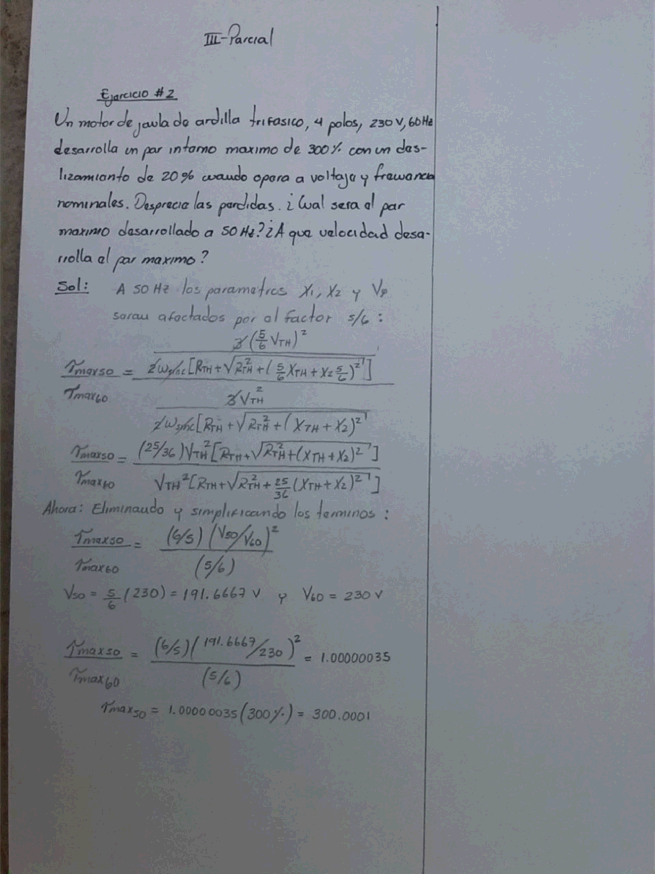 III-Parcial
Ejercicio #2
Un motor de jaula de ardilla trifasico, 4 polos, 230 V, 60 Hz
desarrolla un par interno maximo de 300% con un des-
lizamiento de 20% cuando opera a voltaje y frecuencia
nominales. Desprecie las perdidas. ¿Cual sera el par
maximo desarrollado a 50 Hz? ¿A que velocidad desa-
rrolla el par maximo?
Sol: A 50 Hz los parametros X1, X2 y Vp
seran afectados por el factor 5/6:
τmax50/τmax60 = [3(5/6 VTH)² / 2ωsync[RTH+√(RTH²+(5/6 XTH + X2 5/6)²)]] / [3VTH² / 2ωsync[RTH+√(RTH²+(XTH+X2)²)]]
τmax50/τmax60 = (25/36)VTH²[RTH+√(RTH²+(XTH+X2)²)] / VTH²[RTH+√(RTH²+25/36(XTH+X2)²)]
Ahora: Eliminando y simplificando los terminos:
τmax50/τmax60 = (6/5)(V50/V60)² / (5/6)
V50 = 5/6 (230) = 191.6667 V y V60 = 230 V
τmax50/τmax60 = (6/5)(191.6667/230)² / (5/6) = 1.00000035
τmax50 = 1.00000035(300%) = 300.0001